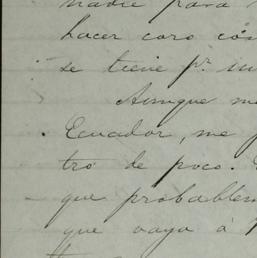 nadie para
hacer coro có
se tiene pr. su
Aunque me
Ecuador, me p
tro de poco.
que probablem
que vaya á